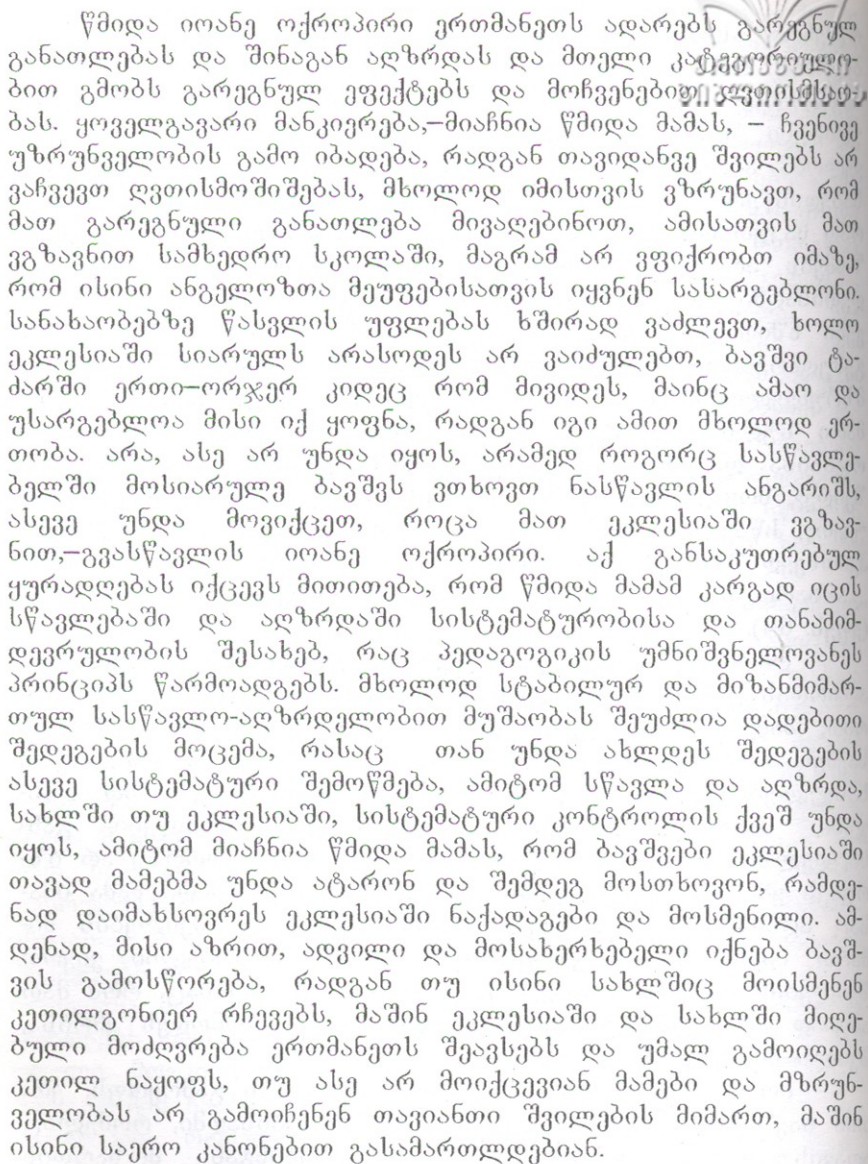 წმიდა იოანე ოქროპირი ერთმანეთს ადარებს გარეგნულ
განათლებას და შინაგან აღზრდას და მთელი კატეგორიულო-
ბით გმობს გარეგნულ ეფექტებს და მოჩვენებით ღვთისმსაო-
ბას. ყოველგვარი მანკიერება,–მიაჩნია წმიდა მამას, – ჩვენივე
უზრუნველობის გამო იბადება, რადგან თავიდანვე შვილებს არ
ვაჩვევთ ღვთისმოშიშებას, მხოლოდ იმისთვის ვზრუნავთ, რომ
მათ გარეგნული განათლება მივაღებინოთ, ამისათვის მათ
ვგზავნით სამხედრო სკოლაში, მაგრამ არ ვფიქრობთ იმაზე,
რომ ისინი ანგელოზთა მეუფებისათვის იყვნენ სასარგებლონი.
სანახაობებზე წასვლის უფლებას ხშირად ვაძლევთ, ხოლო
ეკლესიაში სიარულს არასოდეს არ ვაიძულებთ, ბავშვი ტა-
ძარში ერთი–ორჯერ კიდეც რომ მივიდეს, მაინც ამაო და
უსარგებლოა მისი იქ ყოფნა, რადგან იგი ამით მხოლოდ ერ-
თობა. არა, ასე არ უნდა იყოს, არამედ როგორც სასწავლე-
ბელში მოსიარულე ბავშვს ვთხოვთ ნასწავლის ანგარიშს,
ასევე უნდა მოვიქცეთ, როცა მათ ეკლესიაში ვგზავ-
ნით,–გვასწავლის იოანე ოქროპირი. აქ განსაკუთრებულ
ყურადღებას იქცევს მითითება, რომ წმიდა მამამ კარგად იცის
სწავლებაში და აღზრდაში სისტემატურობისა და თანამიმ-
დევრულობის შესახებ, რაც პედაგოგიკის უმნიშვნელოვანეს
პრინციპს წარმოადგებს. მხოლოდ სტაბილურ და მიზანმიმარ-
თულ სასწავლო-აღზრდელობით მუშაობას შეუძლია დადებითი
შედეგების მოცემა, რასაც თან უნდა ახლდეს შედეგების
ასევე სისტემატური შემოწმება, ამიტომ სწავლა და აღზრდა,
სახლში თუ ეკლესიაში, სისტემატური კონტროლის ქვეშ უნდა
იყოს, ამიტომ მიაჩნია წმიდა მამას, რომ ბავშვები ეკლესიაში
თავად მამებმა უნდა ატარონ და შემდეგ მოსთხოვონ, რამდე-
ნად დაიმახსოვრეს ეკლესიაში ნაქადაგები და მოსმენილი. ამ-
დენად, მისი აზრით, ადვილი და მოსახერხებელი იქნება ბავშ-
ვის გამოსწორება, რადგან თუ ისინი სახლშიც მოისმენენ
კეთილგონიერ რჩევებს, მაშინ ეკლესიაში და სახლში მიღე-
ბული მოძღვრება ერთმანეთს შეავსებს და უმალ გამოიღებს
კეთილ ნაყოფს, თუ ასე არ მოიქცევიან მამები და მზრუნ-
ველობას არ გამოიჩენენ თავიანთი შვილების მიმართ, მაშინ
ისინი საერო კანონებით გასამართლდებიან.